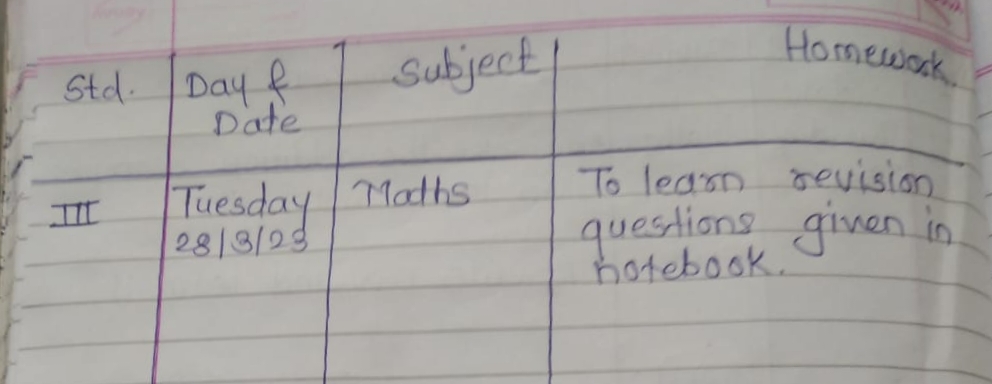 Std. Day & Subject Homework.
Date
III Tuesday Maths To learn revision
28/3/23 questions given in
notebook.